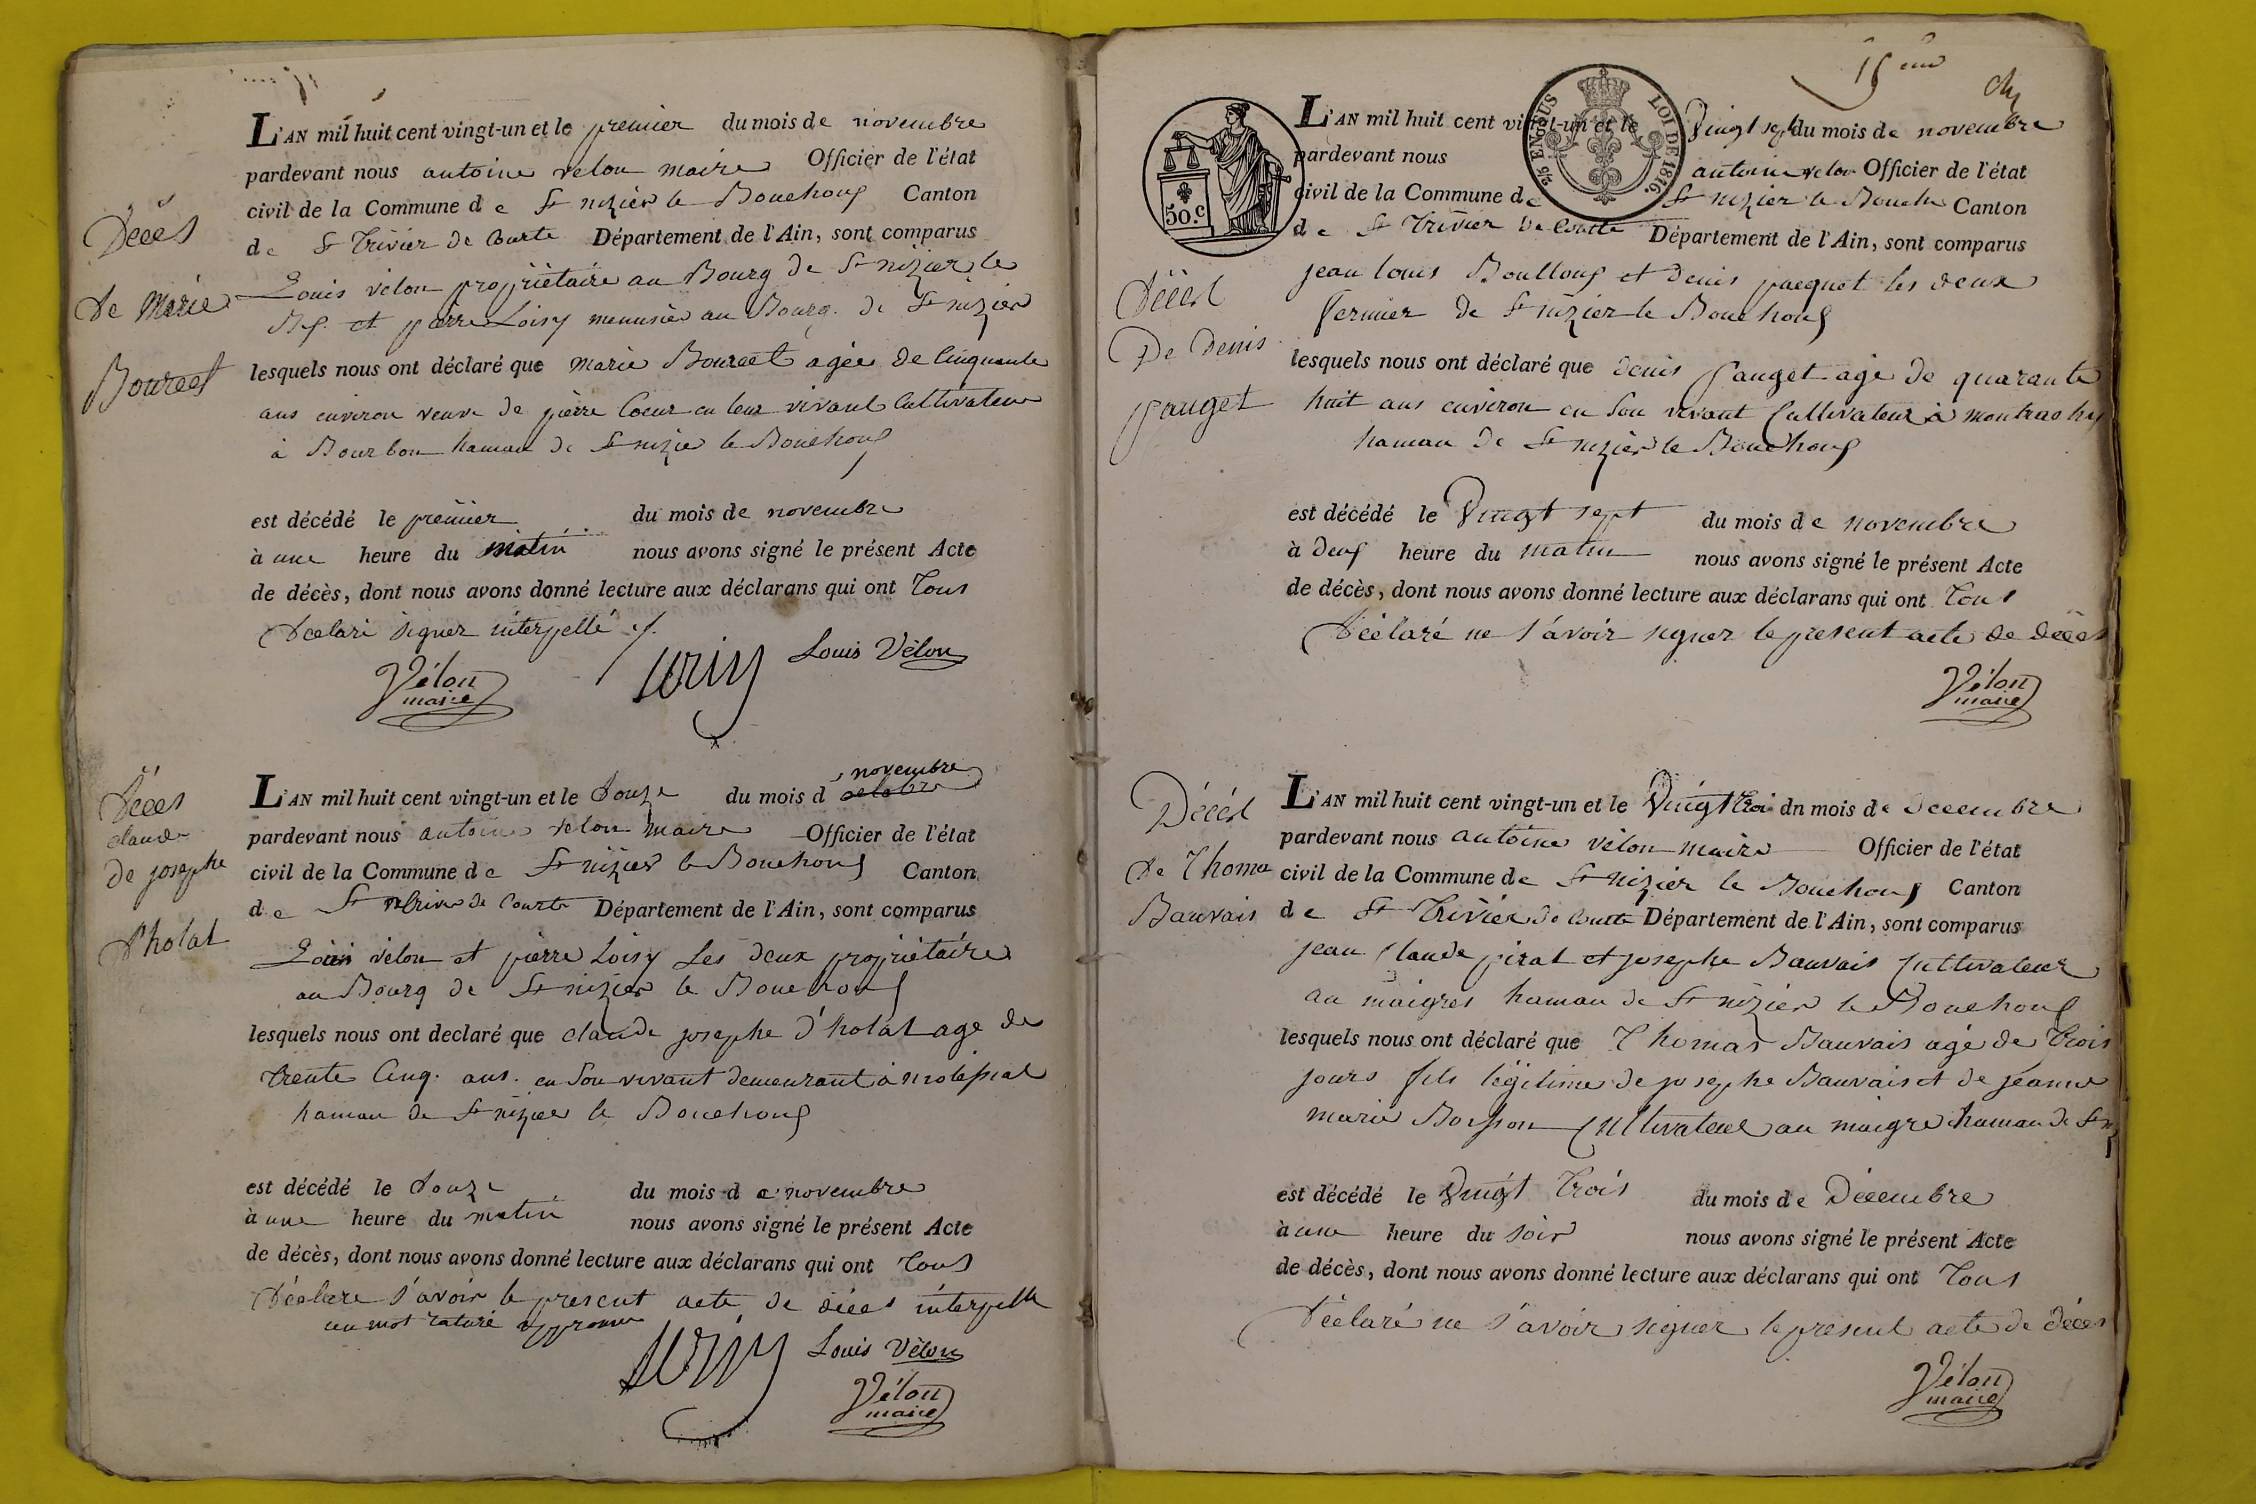 L'AN mil huit cent vingt-un et le premier du mois de novembre
pardevant nous antoine velon maire Officier de l'état
civil de la Commune de St nizier le Bouchoux Canton
de St Trivier de Courte Département de l'Ain, sont comparus
Louis vélon propriétaire au Bourg de St nizier le
et pierre Loisy menusier au Bourg de St nizier
Décès
de Marie
Bourcet
lesquels nous ont déclaré que marie Bourcet agée de Cinquante
ans environ veuve de pierre Coeur en leur vivant Cultivateur
à Bourbon hamau de St nizier le Bouchoux
est décédé le premier du mois de novembre
à une heure du matin nous avons signé le présent Acte
de décès, dont nous avons donné lecture aux déclarans qui ont Tous
Déclaré signer interpellé ./.
Vélon
maire
Louis Vélon
Décès
claude
de josephe
d'holat
L'AN mil huit cent vingt-un et le Douze du mois d octobre novembre
pardevant nous antoine velon maire Officier de l'état
civil de la Commune de St nizier le Bouchoux Canton
de St Trivier de Courte Département de l'Ain, sont comparus
Louis vélon et pierre Loisy Les deux propriétaire
au Bourg de St nizier le Bouchoux
lesquels nous ont declaré que claude josephe d'holat age de
trente Cinq ans. en Son vivant demeurant à
hamau de St nizier le Bouchoux
est décédé le Douze du mois de novembre
à une heure du matin nous avons signé le présent Acte
de décès, dont nous avons donné lecture aux déclarans qui ont Tous
Déclare s'avoir le present acte de décès interpellé
un mot raturé approuve
Louis Vélon
Vélon
maire
15
50.c
25 EN SUS LOI DE 1816.
L'AN mil huit cent vingt-un et le Vingt sept du mois de novembre
pardevant nous antoine velon Officier de l'état
civil de la Commune de St nizier le Bouchx Canton
de St Trivier de Courte Département de l'Ain, sont comparus
jean louis Boulloux et denis pacquet les deux
fermier de St nizier le Bouchoux
Décès
De Denis
pauget
lesquels nous ont déclaré que denis pauget agé de quarante
huit ans environ en Son vivant Cultivateur à
hamau de St nizier le Bouchoux
est décédé le Vingt sept du mois de novembre
à deux heure du matin nous avons signé le présent Acte
de décès, dont nous avons donné lecture aux déclarans qui ont Tous
Déclaré ne s'avoir signer le present acte de décès
Vélon
maire
Décès
de Thoma
Bauvais
L'AN mil huit cent vingt-un et le Vingt troi dn mois de decembre
pardevant nous antoine vélon maire Officier de l'état
civil de la Commune de St nizier le Bouchoux Canton
de St Trivier de Courte Département de l'Ain, sont comparus
jean Claude pirat et josephe Bauvais Cultivateur
au maigres hamau de St nizier le Bouchoux
lesquels nous ont déclaré que Thomas Bauvais agé de Trois
jours fils légitime de josephe Bauvais et de jeanne
marie Boisson Cultivateur au maigre hamau de St
est décédé le Vingt Trois du mois de Décembre
à une heure du soir nous avons signé le présent Acte
de décès, dont nous avons donné lecture aux déclarans qui ont Tous
Déclaré ne s'avoir signer le present acte de décès
Vélon
maire